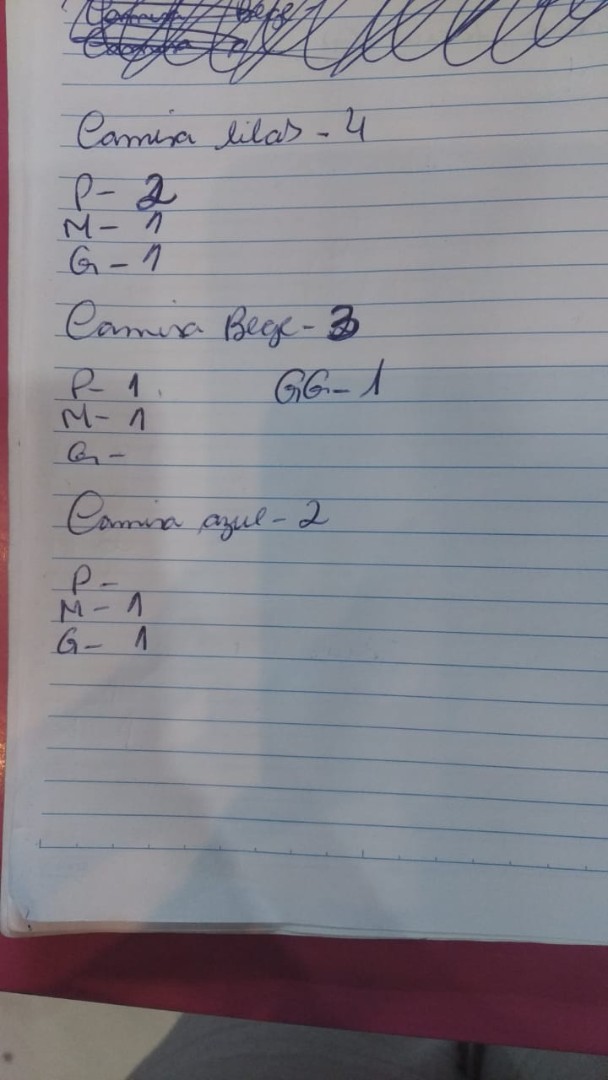 Camisa lilas - 4
P - 2
M - 1
G - 1
Camisa Bege - 3
P - 1 GG - 1
M - 1
G -
Camisa azul - 2
P -
M - 1
G - 1